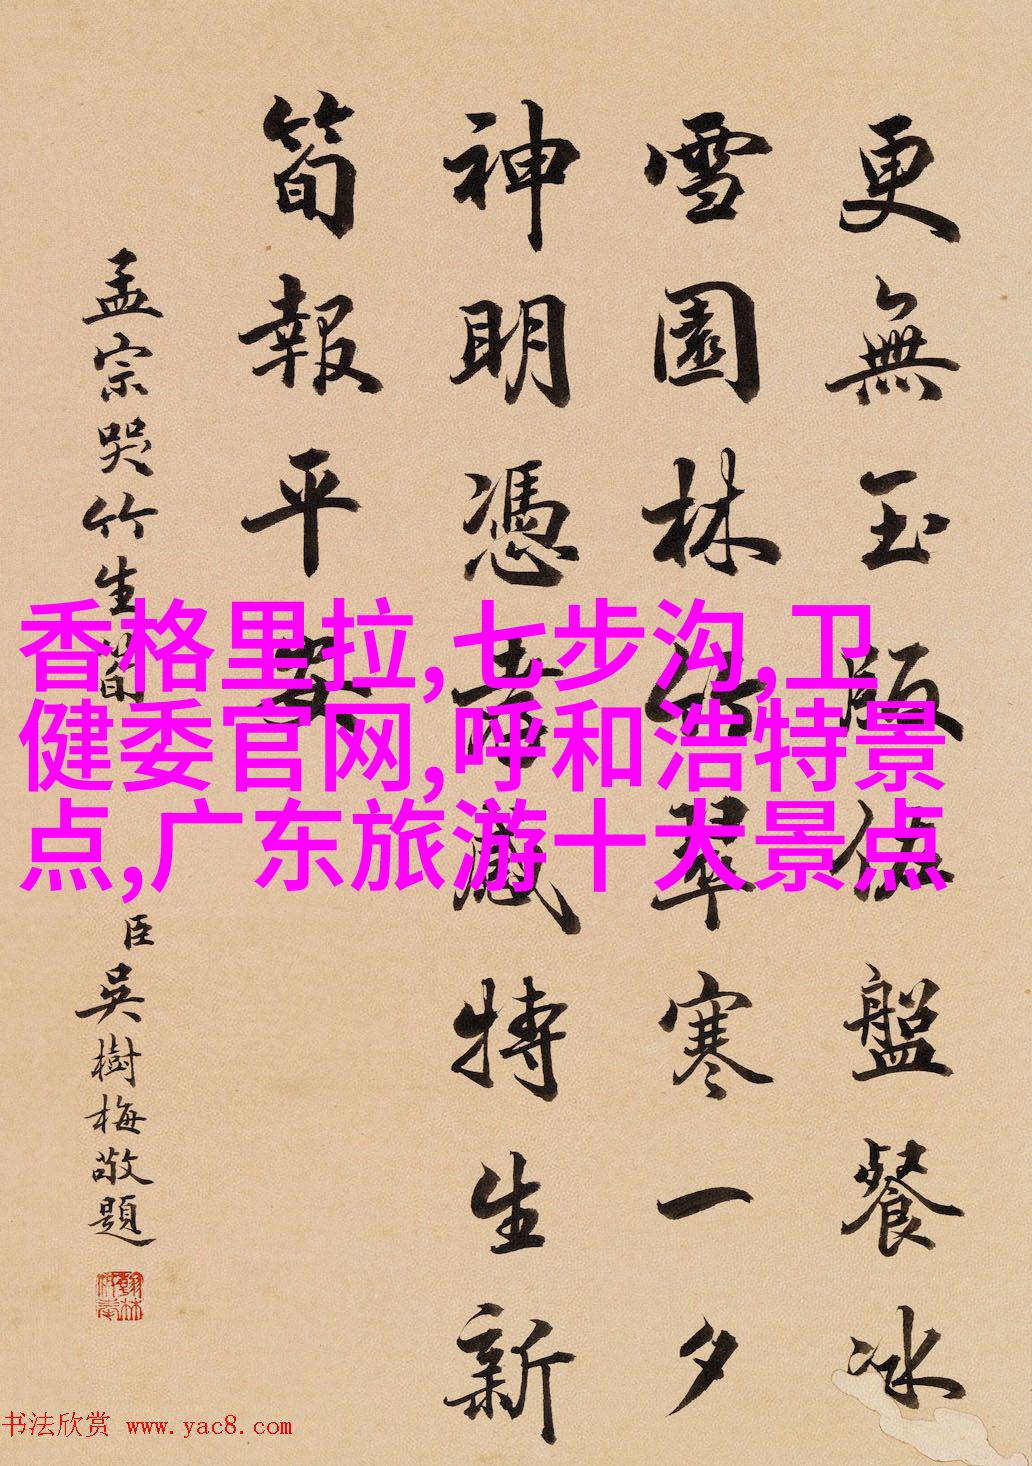 更無玉版佐盤餐冰
雪園林竹翠寒一夕
神明憑孝感特生新
筍報平安
孟宗哭竹生筍
臣吳樹梅敬題
香格里拉,七步沟,卫
健委官网,呼和浩特景
点,广东旅游十大景点
书法欣赏 www.yac8.com